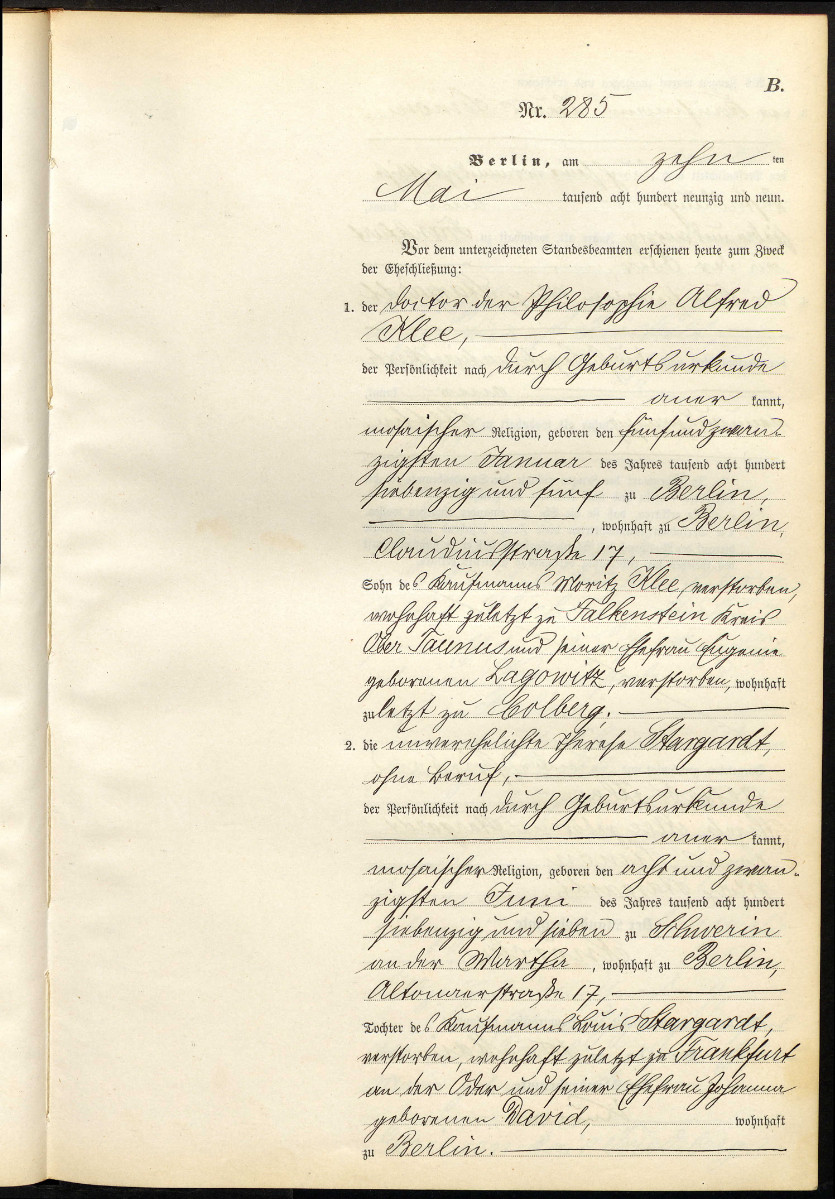 B.
Nr. 285
Berlin, am zehn ten
Mai tausend acht hundert neunzig und neun.
Vor dem unterzeichneten Standesbeamten erschienen heute zum Zweck
der Eheschließung:
1. der Doctor der Philosophie Alfred
Klee,
der Persönlichkeit nach durch Geburtsurkunde
aner kannt,
mosaischer Religion, geboren den fünfundzwan-
zigsten Januar des Jahres tausend acht hundert
siebenzig und fünf zu Berlin,
, wohnhaft zu Berlin,
Claudiusstraße 17,
Sohn des Kaufmanns Moritz Klee, verstorben,
wohnhaft zuletzt zu Falkenstein Kreis
Ober Taunus und seiner Ehefrau Eugenie
geborenen Lagowitz, verstorben, wohnhaft
zuletzt zu Colberg.
2. die unverehelichte Therese Stargardt,
ohne Beruf,
der Persönlichkeit nach durch Geburtsurkunde
aner kannt,
mosaischer Religion, geboren den acht und zwan-
zigsten Juni des Jahres tausend acht hundert
siebenzig und sieben zu Schwerin
an der Wartha, wohnhaft zu Berlin,
Altonaerstraße 17,
Tochter des Kaufmanns Louis Stargardt,
verstorben, wohnhaft zuletzt zu Frankfurt
an der Oder und seiner Ehefrau Johanna
geborenen David, wohnhaft
zu Berlin.